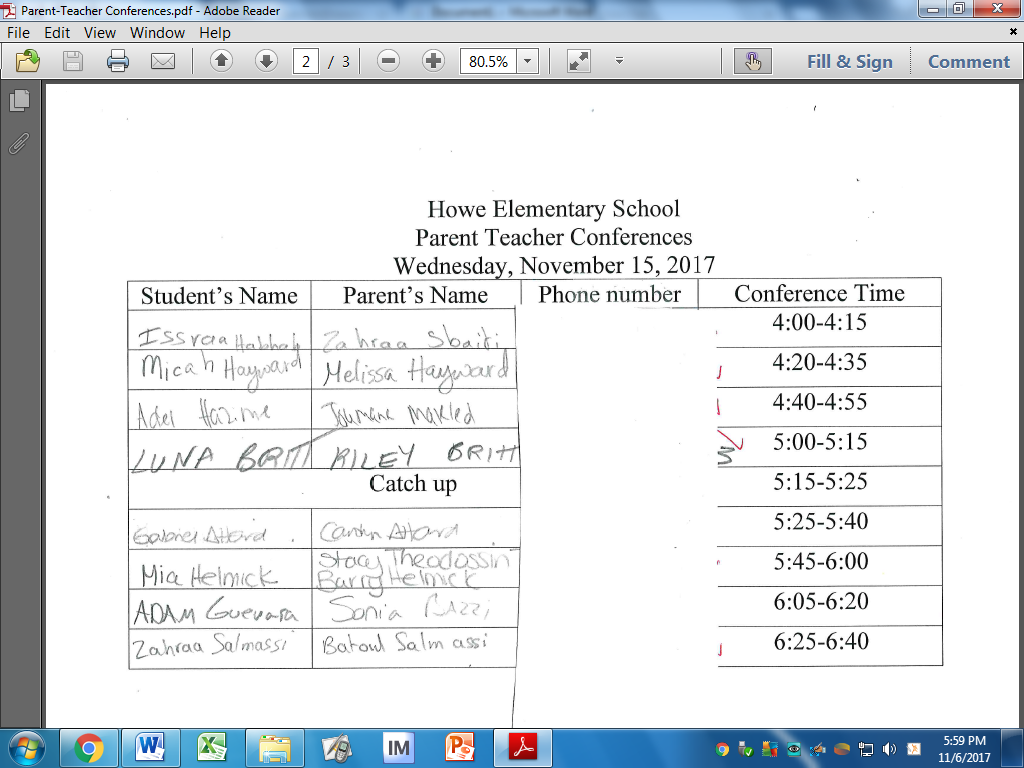 Parent-Teacher Conferences.pdf - Adobe Reader
File Edit View Window Help
2 / 3 80.5% Fill & Sign Comment
Howe Elementary School
Parent Teacher Conferences
Wednesday, November 15, 2017
Student's Name Parent's Name Phone number Conference Time
Issraa Zahraa Sbaiti 4:00-4:15
Micah Hayward Melissa Hayward 4:20-4:35
Adel Hazime Joumane Makled 4:40-4:55
LUNA BRITT RILEY BRITT 5:00-5:15
Catch up 5:15-5:25
Gabriel Attard Carolyn Attard 5:25-5:40
Mia Helmick Stacy Theodossin 5:45-6:00
Barry Helmick
ADAM Guevara Sonia Bazzi 6:05-6:20
Zahraa Salmassi Batoul Salmassi 6:25-6:40
IM
5:59 PM
11/6/2017